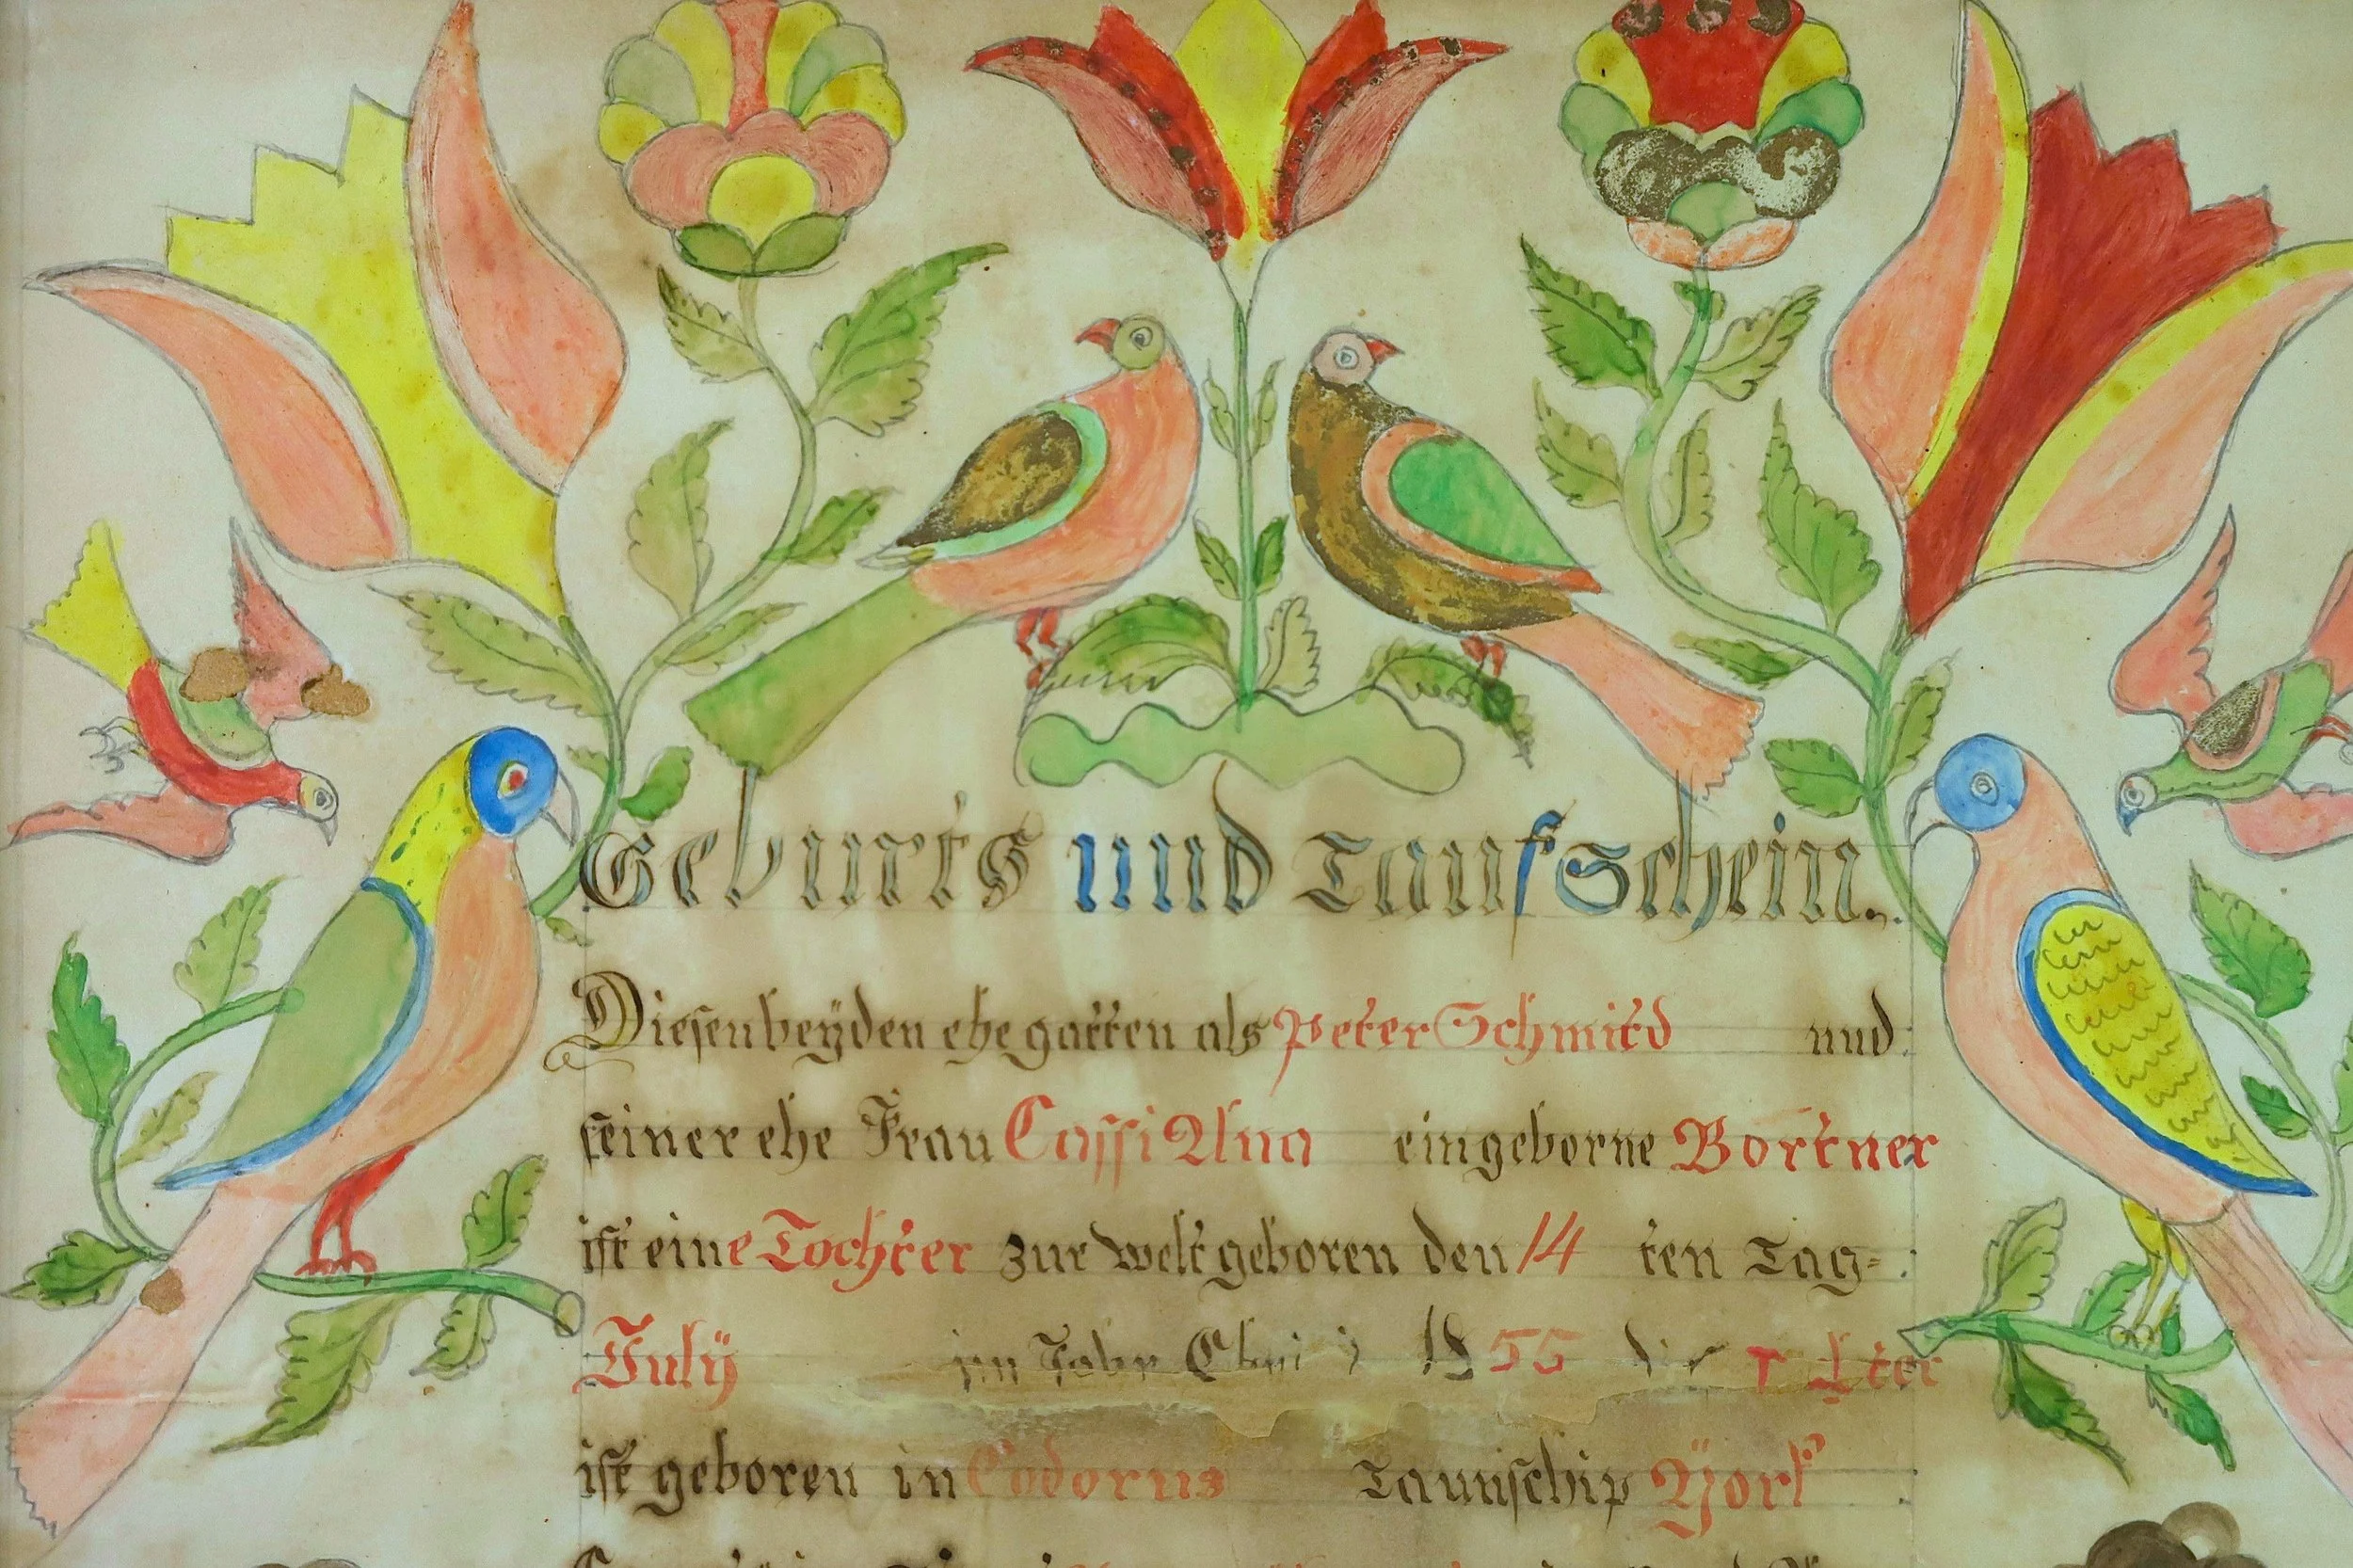 Geburts und Taufschein.
Diesen beÿden ehegatten als Peter Schmitd und
seiner ehe Frau Cassi Ana eingeborne Bortner
ist eine Tochter zur Welt geboren den 14 ten Tag
Julÿ im Jahr 1855
ist geboren in Codorus Taunschip York